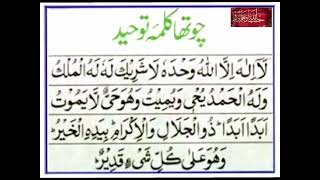 چوتھا کلمہ توحید
لَآ اِلٰهَ اِلَّا اللهُ وَحْدَهٗ لَا شَرِيْكَ لَهٗ لَهُ الْمُلْكُ
وَلَهُ الْحَمْدُ يُحْيٖ وَيُمِيْتُ وَهُوَ حَيٌّ لَّا يَمُوْتُ
اَبَدًا اَبَدًا ؕ ذُو الْجَلَالِ وَالْاِكْرَامِ ؕ بِيَدِهِ الْخَيْرُ ؕ
وَهُوَ عَلٰى كُلِّ شَیْءٍ قَدِيْرٌ ؕ